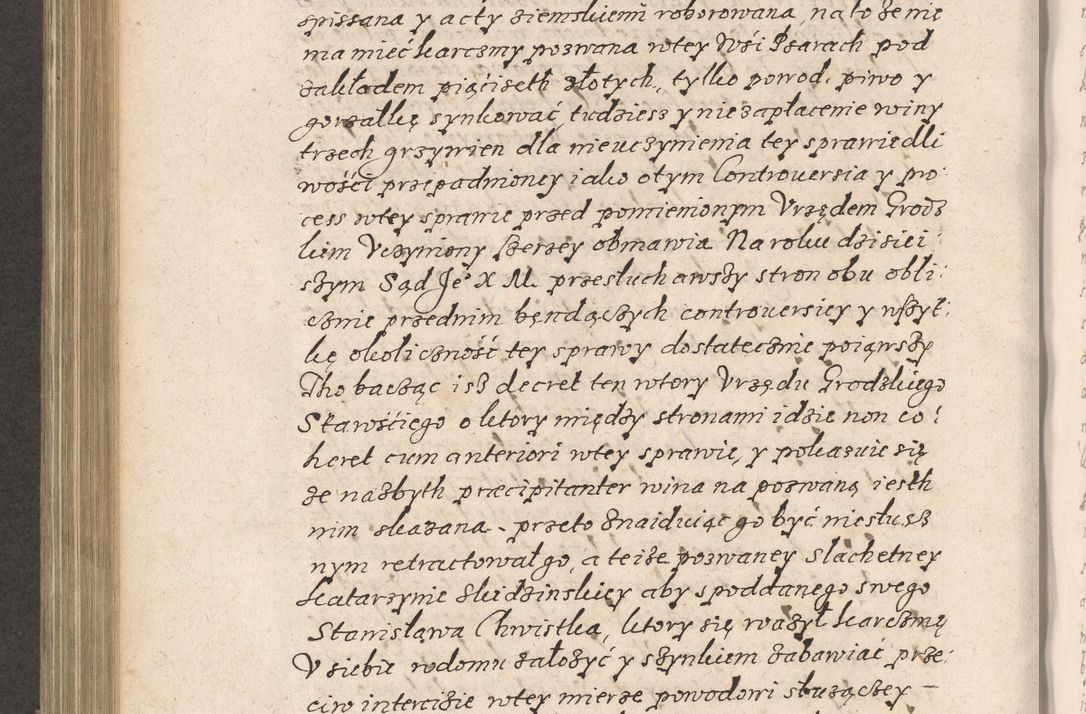 spissana y acty ziemskiemi roborowana, na to że nie
ma mieć karczmy pozwana wtey Wśi Psarach pod
zakładem piąćiseth złotych, tylko powod. piwo y
gorzałkę synkować, tudziesz y niezapłacenie winy
trzech grzywien dla nieuczynienia tey sprawiedli
wośći przepadnioney iako o tym Controuersia y pro
cess wtey sprawie przed pomienionym Vrzędem Grodz
kim Vczyniony szerzey obmawia. Na roku dzisiei
szym Sąd Je° X M. przesłuchawszy stron obu obli:
cznie przednim będących controuersiey y wszyt:
kę okoliczność tey sprawy dostatecznie poiąwszy
Tho bacząc isz decret ten wtory Vrzędu Grodzkiego
Starośćiego o ktory między stronami idzie non co:
heret cum anteriori wtey sprawie, y pokazuie się
że nazbyth præcipitanter wina na pozwaną iesth
nim skazana - przeto znaiduiąc go być niesłusz
nym retractował go, a teize pozwaney Slachetney
Katarzynie Skidzinskiey aby s poddanego swego
Stanisława Chwistka, ktory się ważył karczmę
V siebie w domu założyć y szynkiem zabawiać prze:
ciw intercizie wtey mierze powodowi służączey —